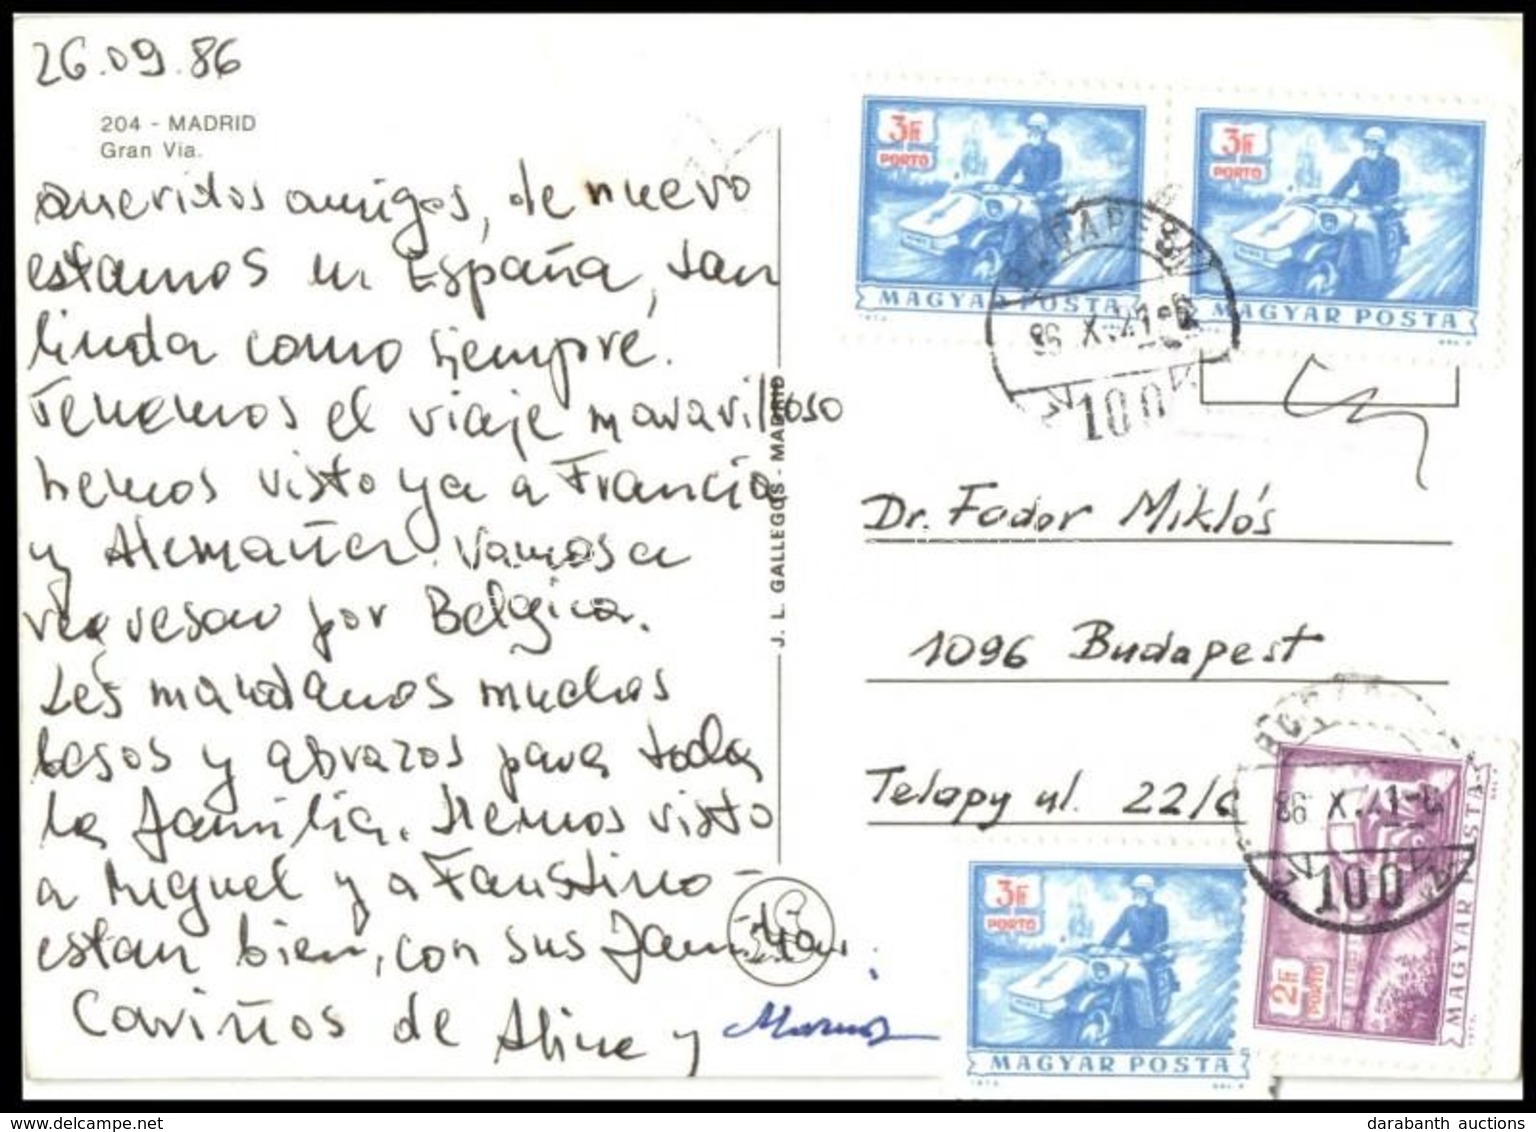 26.09.86
204 - MADRID
Gran Via.
queridos amigos, de nuevo
estamos en España, tan
linda como siempre.
Tenemos el viaje maravilloso
hemos visto ya a Francia
y Alemaña. Vamos a
regresar por Belgica.
Les mandamos muchos
besos y abrazos para toda
la familia. Hemos visto
a Miguel y a Faustino -
estan bien, con sus familias.
Cariños de Aline y
J. L. GALLEGOS - MADRID
3 Ft
PORTO
MAGYAR POSTA
3 Ft
PORTO
MAGYAR POSTA
BUDAPEST
86 X.
100
Dr. Fodor Miklós
1096 Budapest
Telapy ul. 22/c
86 X.
100
2 Ft
PORTO
MAGYAR POSTA
3 Ft
PORTO
MAGYAR POSTA
darabanth auctions